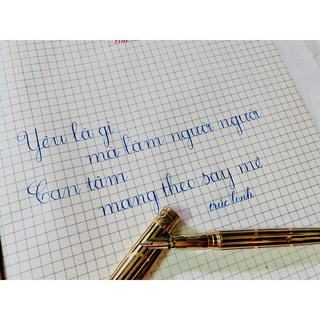 Yêu là gì
mà làm người người
Can tâm
mang theo say mê
trúc linh